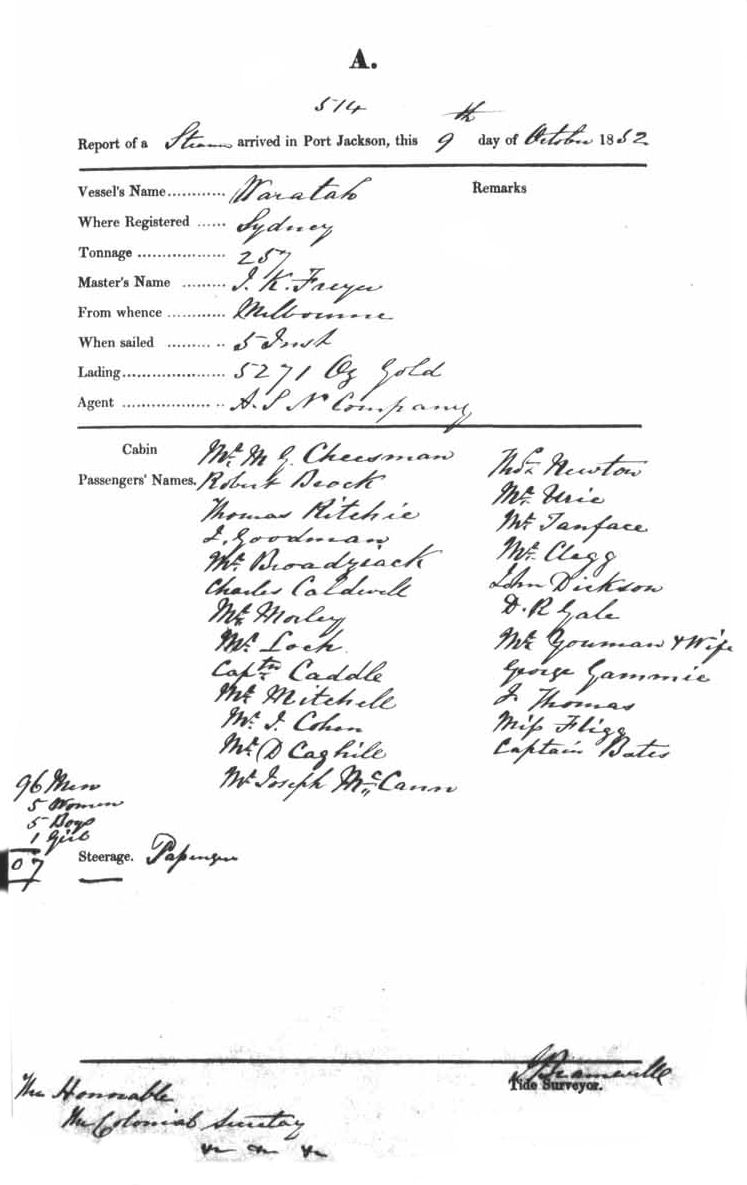 A.
514
Report of a Steamer arrived in Port Jackson, this 9th day of October 1852
Vessel's Name............ Waratah
Remarks
Where Registered ...... Sydney
Tonnage .................. 257
Master's Name ......... J. K. Freyer
From whence ............ Melbourne
When sailed ......... .. 5 Inst
Lading..................... 5271 Oz Gold
Agent .................. .. A. S N Company
Cabin
Passengers' Names.
Mr. M G Cheesman
Robert Brock
Thomas Ritchie
J. Goodman
Mr Broadyjack
Charles Caldwell
Mr Morley
Mr. Lock
Captn. Caddle
Mr Mitchell
Mr. J. Cohen
Mr. D Caghill
Mr Joseph McCann
Thos. Newton
Mr. Urie
Mr. Tanface
Mr. Clegg
John Dickson
D. R Gale
Mr Youman & Wife
George Gammie
J Thomas
Miss Fligg
Captain Bates
96 Men
5 Women
5 Boys
1 Girl
07
Steerage. Passengers
Tide Surveyor.
The Honorable
The Colonial Secretary